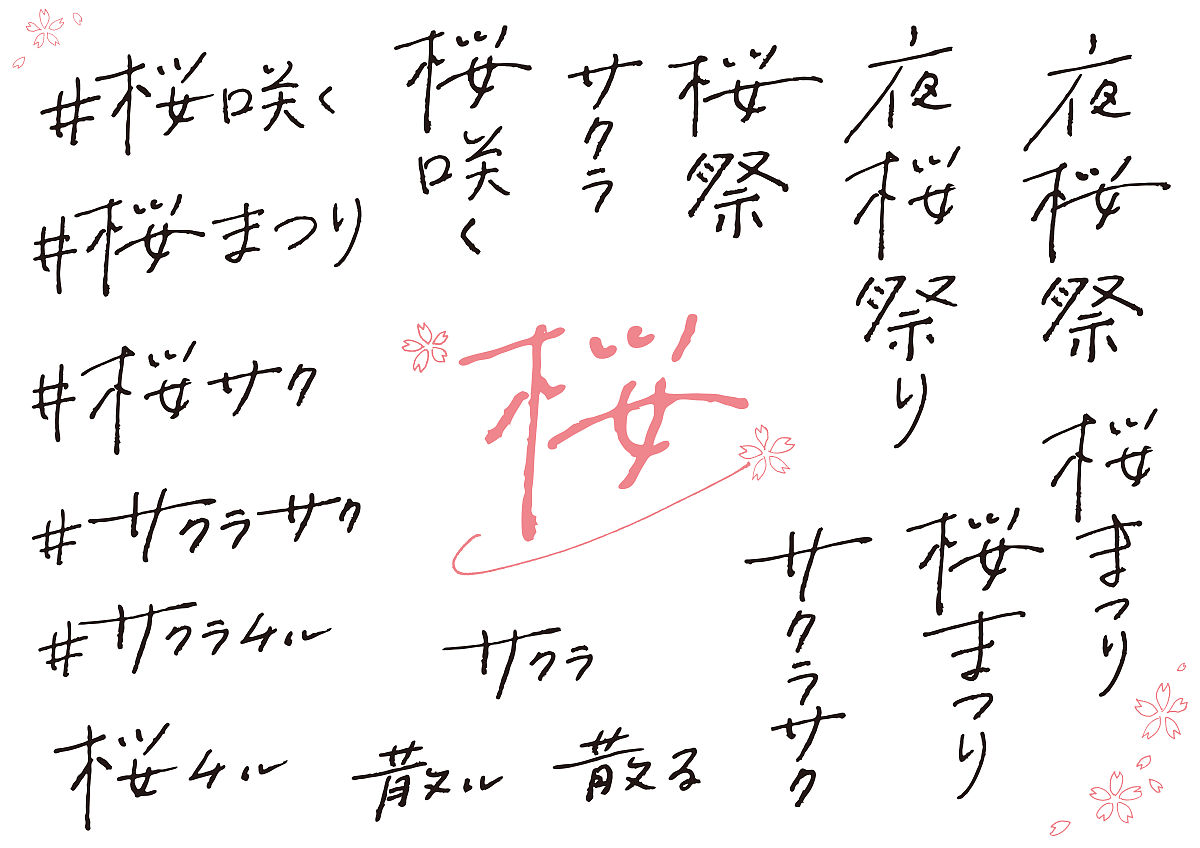 #桜咲く
#桜まつり
#桜サク
#サクラサク
#サクラチル
桜チル
桜咲く
サクラ
桜祭
夜桜祭り
夜桜祭
桜
サクラ
散ル
散る
サクラサク
桜まつり
桜まつり